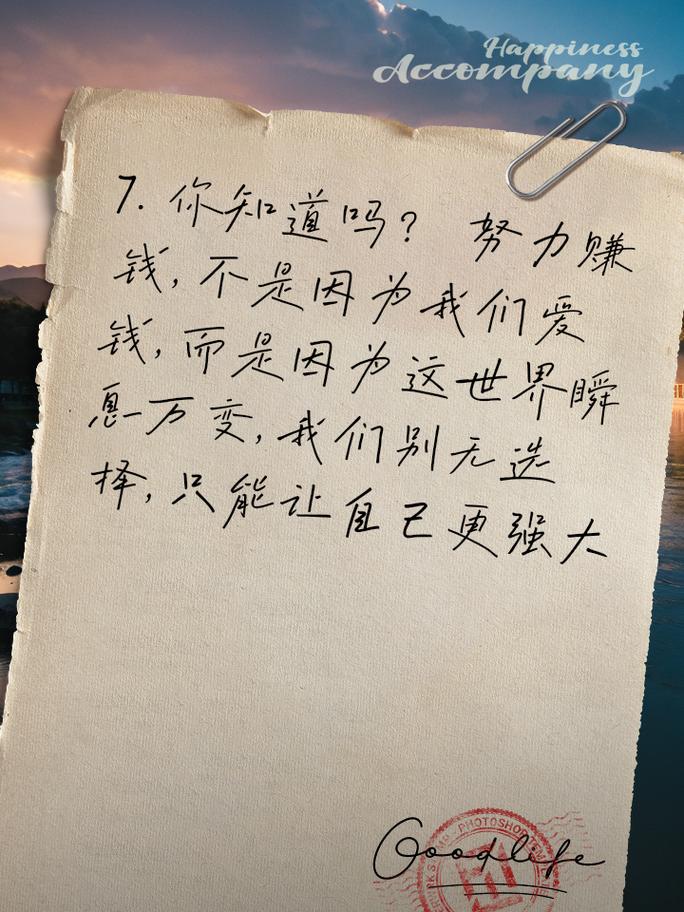 Happiness
Accompany
7. 你知道吗? 努力赚
钱,不是因为我们爱
钱,而是因为这世界瞬
息万变,我们别无选
择,只能让自己更强大
PHOTOSHOP
Goodlife